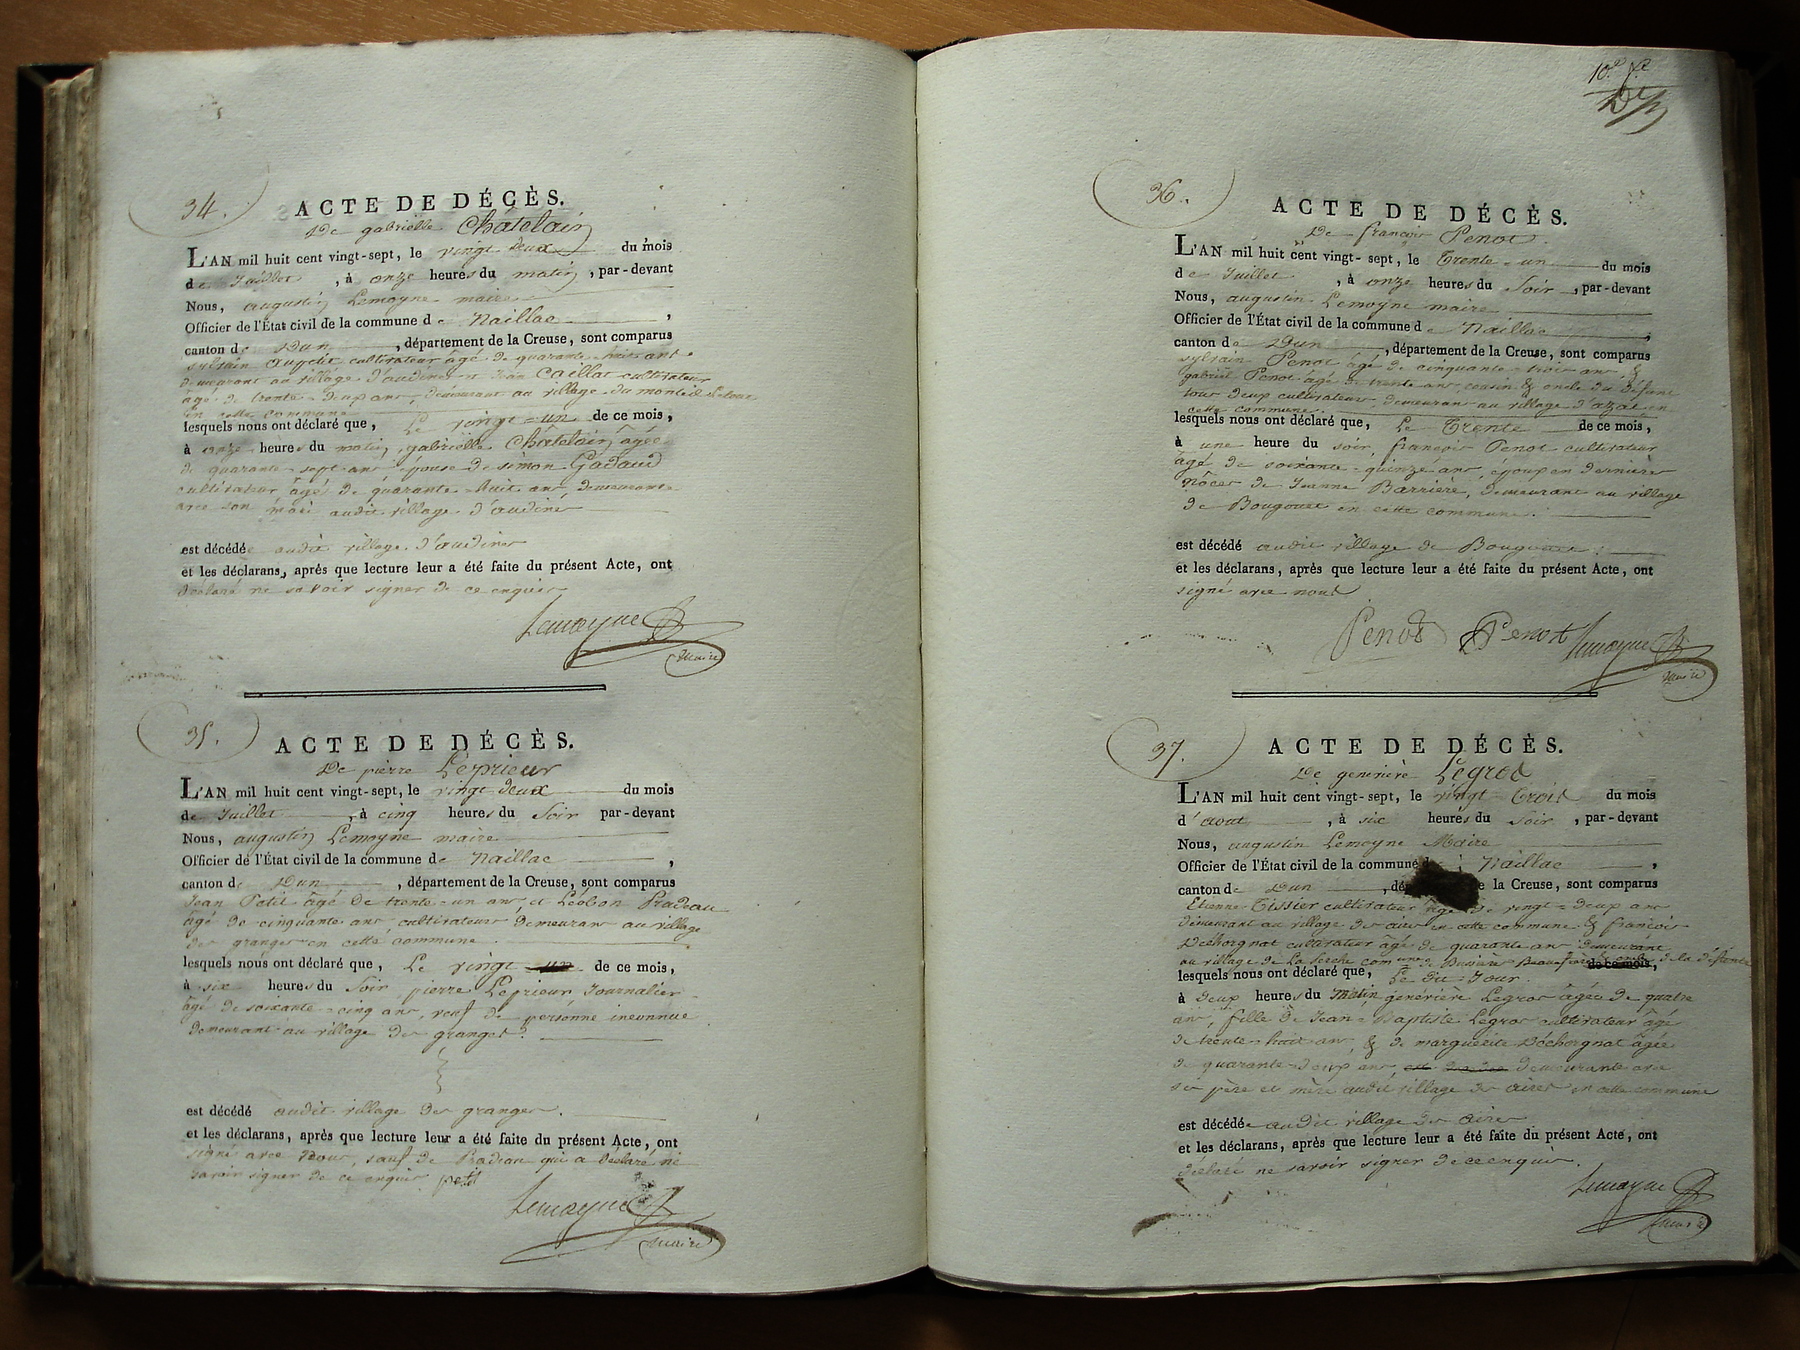 34.
ACTE DE DÉCÈS.
De gabrielle Châtelain
L'AN mil huit cent vingt-sept, le vingt deux du mois
de Juillet, à onze heures du matin, par-devant
Nous, augustin Lemoyne maire
Officier de l'État civil de la commune de Naillac,
canton de Dun, département de la Creuse, sont comparus
sylvain cultivateur âgé de quarante-huit ans
demeurant au village d'audines et Jean Caillat cultivateur
âgé de trente-deux ans, demeurant au village du
en cette commune
lesquels nous ont déclaré que, Le vingt-un de ce mois,
à onze heures du matin, gabrielle Châtelain âgée
de quarante-sept ans épouse de simon Gadaud
cultivateur âgé de quarante-huit ans, demeurante
avec son mari audit village d'audines
est décédée audit village d'audines
et les déclarans, après que lecture leur a été faite du présent Acte, ont
déclaré ne savoir signer de ce enquis
Lemoyne
maire
35.
ACTE DE DÉCÈS.
De pierre Léprieur
L'AN mil huit cent vingt-sept, le vingt deux du mois
de Juillet, à cinq heures du Soir par-devant
Nous, augustin Lemoyne maire
Officier de l'État civil de la commune de Naillac,
canton de Dun, département de la Creuse, sont comparus
Jean Petit âgé de trente-un ans, et Léobon Pradeau
âgé de cinquante ans, cultivateurs demeurans au village
des granges en cette commune
lesquels nous ont déclaré que, Le vingt un de ce mois,
à six heures du Soir pierre Leprieur Journalier
âgé de soixante-cinq ans, veuf de personne inconnue
demeurant au village des granges
est décédé audit village des granges.
et les déclarans, après que lecture leur a été faite du présent Acte, ont
signé avec Nous, sauf de Pradeau qui a Declaré ne
savoir signer de ce enquis petit
Lemoyne
maire
36.
ACTE DE DÉCÈS.
De françois Penot.
L'AN mil huit cent vingt-sept, le Trente-un du mois
de Juillet, à onze heures du Soir, par-devant
Nous, augustin Lemoyne maire
Officier de l'État civil de la commune de Naillac,
canton de Dun, département de la Creuse, sont comparus
sylvain Penot âgé de cinquante-trois ans, &
gabriel Penot âgé de trente ans cousin & oncle du défunt
tous deux cultivateurs, demeurans au village d'azat en
cette commune.
lesquels nous ont déclaré que, Le Trente de ce mois,
à une heure du soir, françois Penot cultivateur
âgé de soixante-quinze ans, époux en dernières
nôces de Jeanne Barrière, demeurant au village
de Bougouet en cette commune.
est décédé audit village de Bougouet.
et les déclarans, après que lecture leur a été faite du présent Acte, ont
signé avec nous
Penot Penot Lemoyne
maire
37.
ACTE DE DÉCÈS.
De geneviève Legros
L'AN mil huit cent vingt-sept, le vingt-Trois du mois
d'aout, à six heures du soir, par-devant
Nous, augustin Lemoyne Maire
Officier de l'État civil de la commune Naillac,
canton de Dun, la Creuse, sont comparus
Etienne Tissier cultivateur âgé de vingt-deux ans
demeurant au village des aires en cette commune & françois
Déchorgnat cultivateur âgé de quarante ans demeurant
au village de La ferche com de de la défunte
lesquels nous ont déclaré que, Le dit Jour de ce mois,
à deux heures du Matin geneviève Legros âgée de quatre
ans, fille de Jean-Baptiste Legros cultivateur âgé
de trente-huit ans, & de marguerite Déchorgnat âgée
de quarante-deux ans, demeurante avec
ses père et mère audit village des aires en cette commune
est décédée audit village des aires
et les déclarans, après que lecture leur a été faite du présent Acte, ont
déclaré ne savoir signer de ce enquis.
Lemoyne
maire